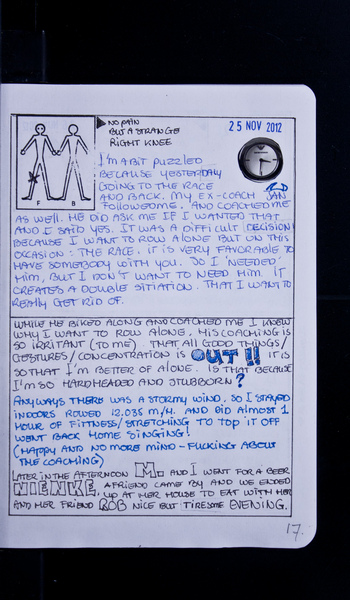 NO PAIN
BUT A STRANGE
RIGHT KNEE
25 NOV 2012
F B
I'M A BIT PUZZLED
BECAUSE YESTERDAY
GOING TO THE RACE
AND BACK. MY EX-COACH JAN
FOLLOWED ME. AND COACHED ME
AS WELL. HE DID ASK ME IF I WANTED THAT
AND I SAID YES. IT WAS A DIFFICULT DECISION
BECAUSE I WANT TO ROW ALONE BUT ON THIS
OCCASION: THE RACE. IT IS VERY FAVORABLE TO
HAVE SOMEBODY WITH YOU. SO I 'NEEDED'
HIM, BUT I DON'T WANT TO NEED HIM. IT
CREATES A DOUBLE SITIATION. THAT I WANT TO
REALLY GET RID OF.
WHILE HE BIKED ALONG AND COACHED ME I KNEW
WHY I WANT TO ROW ALONE. HIS COACHING IS
SO IRRITANT (TO ME). THAT ALL GOOD THINGS/
GESTURES/CONCENTRATION IS OUT!! IT IS
SO THAT I'M BETTER OF ALONE. IS THAT BECAUSE
I'M SO HARDHEADED AND STUBBORN?
ANYWAYS THERE WAS A STORMY WIND. SO I STAYED
INDOORS ROWED 12.035 M/4. AND DID ALMOST 1
HOUR OF FITTNESS/STRETCHING TO TOP IT OFF
WENT BACK HOME SINGING!
(HAPPY AND NO MORE MIND-FUCKING ABOUT
THE COACHING)
LATER IN THE AFTERNOON M. AND I WENT FOR A BEER
NIENKE, A FRIEND CAME BY AND WE ENDED
UP AT HER HOUSE TO EAT WITH HER
AND HER FRIEND ROB NICE BUT TIRESOME EVENING.
17.